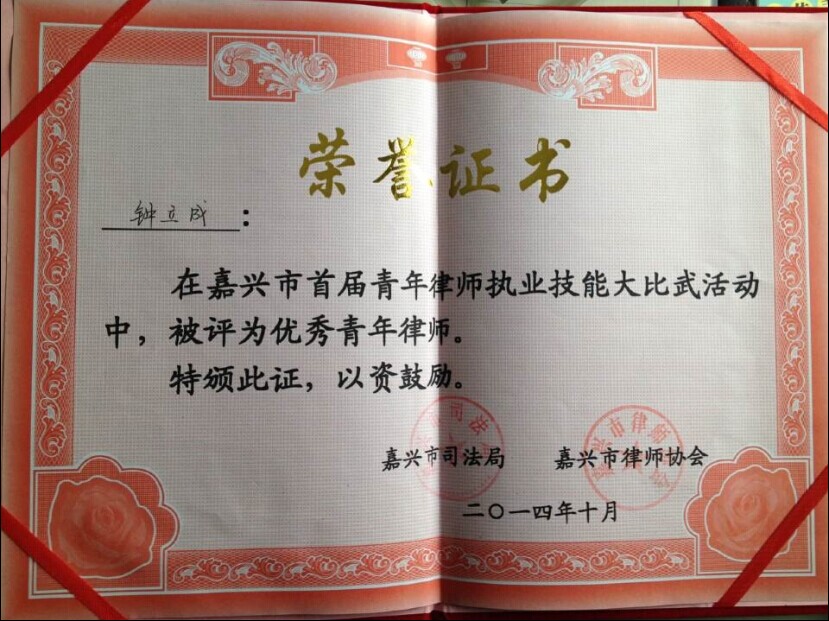 荣誉证书
钟立成：
在嘉兴市首届青年律师执业技能大比武活动
中，被评为优秀青年律师。
特颁此证，以资鼓励。
嘉兴市司法局 嘉兴市律师协会
二〇一四年十月